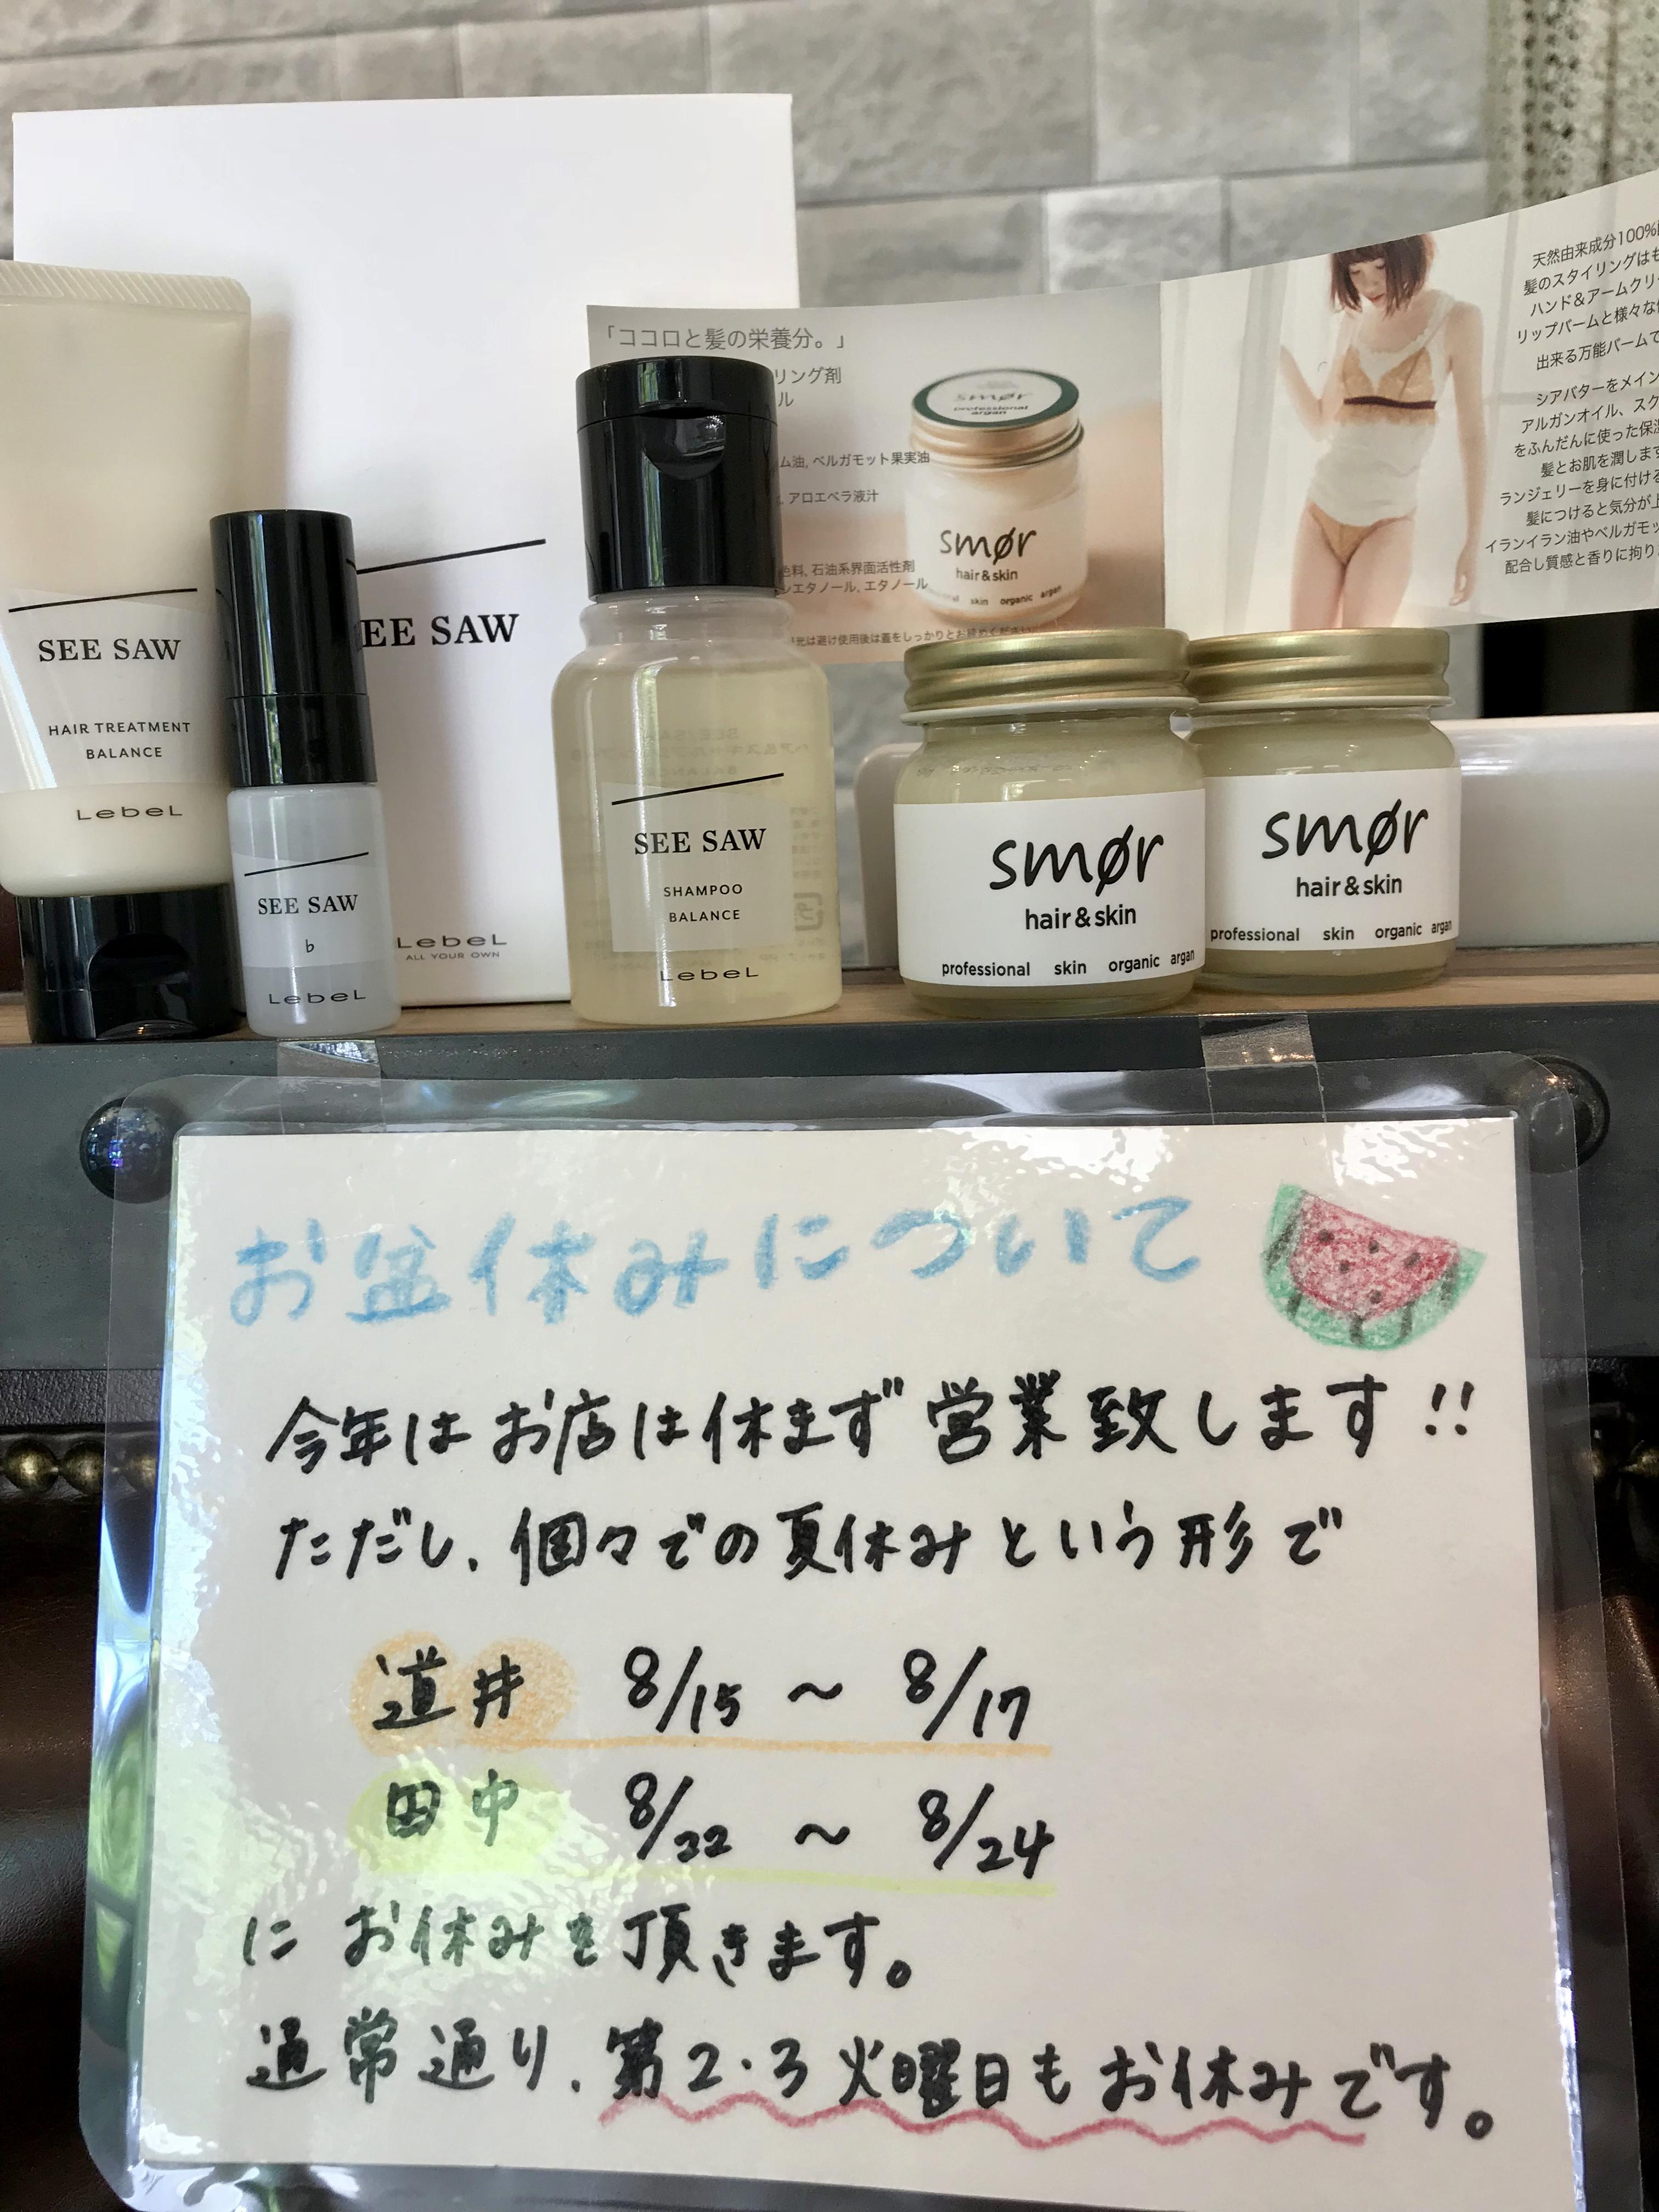 SEE SAW
HAIR TREATMENT
BALANCE
LebeL
SEE SAW
♭
LebeL
EE SAW
LebeL
ALL YOUR OWN
SEE SAW
SHAMPOO
BALANCE
LebeL
「ココロと髪の栄養分。」
リング剤
ル
ム油, ベルガモット果実油
アロエベラ液汁
色料, 石油系界面活性剤
エタノール, エタノール
光は避け使用後は蓋をしっかりとお締めください
smør
professional
argan
smør
hair&skin
skin organic argan
天然由来成分100%
髪のスタイリングはも
ハンド&アームクリ
リップバームと様々な
出来る万能バームで
シアバターをメイン
アルガンオイル、スク
をふんだんに使った保
髪とお肌を潤します
ランジェリーを身に付ける
髪につけると気分が上
イランイラン油やベルガモッ
配合し質感と香りに拘り
smør
hair&skin
professional skin organic argan
smør
hair&skin
professional skin organic argan
お盆休みについて
今年はお店は休まず営業致します!!
ただし、個々での夏休みという形で
道井 8/15 ～ 8/17
田中 8/22 ～ 8/24
にお休みを頂きます。
通常通り、第2・3火曜日もお休みです。